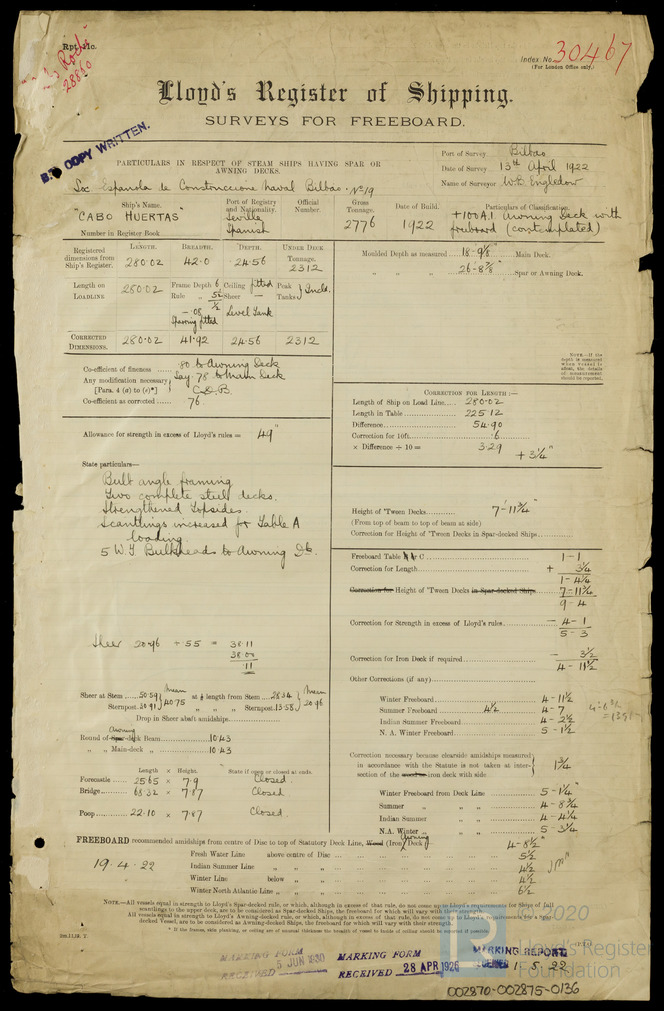 Rpt. 11c.
28860
Index No. 30467
(For London Office only.)
Lloyd's Register of Shipping.
SURVEYS FOR FREEBOARD.
COPY WRITTEN.
PARTICULARS IN RESPECT OF STEAM SHIPS HAVING SPAR OR
AWNING DECKS.
Port of Survey Bilbao
Date of Survey 13th April 1922
Name of Surveyor W.E. Engledow
Soc Espanola de Construccione Naval Bilbao. No 19
Ship's Name.
"CABO HUERTAS"
Number in Register Book
Port of Registry and Nationality.
Seville
Spanish
Official Number.
Gross Tonnage.
2776
Date of Build.
1922
Particulars of Classification.
+100A1 Awning Deck with
freeboard (contemplated)
Registered dimensions from Ship's Register.
LENGTH. 280.02
BREADTH. 42.0
DEPTH. 24.56
UNDER DECK Tonnage. 2312
Length on LOADLINE 280.02
Frame Depth 6 Ceiling fitted Peak Tanks } Incld.
Rule " 5½ Sheer —
½
– .08 Level Tank
Sparring fitted
CORRECTED DIMENSIONS. 280.02 41.92 24.56 2312
Moulded Depth as measured 18-9⅛" Main Deck.
" " " 26-8⅞" Spar or Awning Deck.
NOTE.—If the depth is measured when vessel is afloat, the details of measurement should be reported.
Co-efficient of fineness .80 to Awning Deck
Any modification necessary Say .78 to Main Deck
[Para. 4 (a) to (e)*] C.D.B.
Co-efficient as corrected .76
Allowance for strength in excess of Lloyd's rules = 49"
CORRECTION FOR LENGTH:—
Length of Ship on Load Line 280.02
Length in Table 225.12
Difference 54.90
Correction for 10ft. .6
× Difference ÷ 10 = 3.29
+ 3¼"
State particulars—
Bulb angle framing
Two complete steel decks.
Strengthened Topsides.
Scantlings increased for Table A
loading.
5 W.T. Bulkheads to Awning Dk.
Height of 'Tween Decks 7'-11¾"
(From top of beam to top of beam at side)
Correction for Height of 'Tween Decks in Spar-decked Ships
Freeboard Table C 1-1
Correction for Length + 3¼
1-4¼
Correction for Height of 'Tween Decks in Spar-decked Ships 7-11¾
9-4
Correction for Strength in excess of Lloyd's rules — 4-1
5-3
Correction for Iron Deck if required — 3½
4-11½
Other Corrections (if any)
Sheer 20.96 ÷ 55 = 38.11
38.00
.11
Sheer at Stem 50.59 } Mean 40.75 at ⅛ length from Stem 28.34 } Mean 20.96
Sternpost 30.91 " " " Sternpost 13.58
Drop in Sheer abaft amidships
Round of Spar-deck Awning Beam 10.43
" " Main-deck " 10.43
Length × Height. State if open or closed at ends.
Forecastle 25.65 × 7.9 Closed.
Bridge 68.32 × 7.87 Closed
Poop 22.10 × 7.87 Closed.
Winter Freeboard 4-11½
Summer Freeboard 4½ 4-7
Indian Summer Freeboard 4-2½
N. A. Winter Freeboard 5-1½
Correction necessary because clearside amidships measured
in accordance with the Statute is not taken at inter-
section of the wood or iron deck with side 1¾
Winter Freeboard from Deck Line 5-1¼"
Summer " " " 4-8¾
Indian Summer " " 4-4¼
N.A. Winter " " 5-3¼
FREEBOARD recommended amidships from centre of Disc to top of Statutory Deck Line, Wood (Iron) Awning Deck 4-8½"
19.4.22
Fresh Water Line above centre of Disc 5½
Indian Summer Line " " 4½
Winter Line below " 4½
Winter North Atlantic Line " " 6½
NOTE.—All vessels equal in strength to Lloyd's Spar-decked rule, or which, although in excess of that rule, do not come up to Lloyd's requirements for Ships of full
scantlings to the upper deck, are to be considered as Spar-decked Ships, the freeboard of which will vary with their strength.
All vessels equal in strength to Lloyd's Awning-decked rule, or which, although in excess of that rule, do not come up to Lloyd's requirements for a spar-
decked Vessel, are to be considered as Awning-decked Ships, the freeboard of which will vary with their strength.
MARKING FORM
RECEIVED 5 JUN 1930
MARKING FORM
RECEIVED 28 APR 1926
MARKING REPORT
RECEIVED 1 5 22
© 2020
Lloyd's Register
Foundation
002870-002875-0136